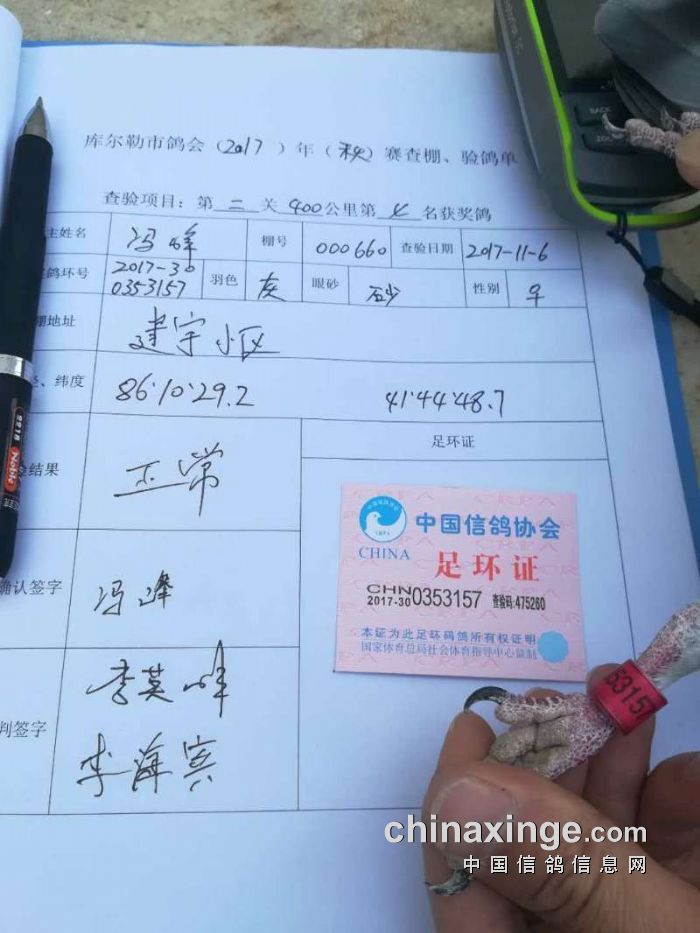 库尔勒市鸽会（2017）年（秋）赛查棚、验鸽单
查验项目：第 二 关 400公里第 七 名获奖鸽
主姓名 冯峰 棚号 000660 查验日期 2017-11-6
鸽环号 2017-30 0353157 羽色 灰 眼砂 砂 性别 ♀
棚地址 建宇小区
、纬度 86°10'29.2 41°44'48.7
结果 正常 足环证
中国信鸽协会
CHINA
足环证
CHN
2017-30 0353157 查验码:475260
本证为此足环码鸽所有权证明
国家体育总局社会体育指导中心监制
确认签字 冯峰
判签字 李英峰
李海宾
53157
BACK
Noble
chinaxinge.com
中国信鸽信息网